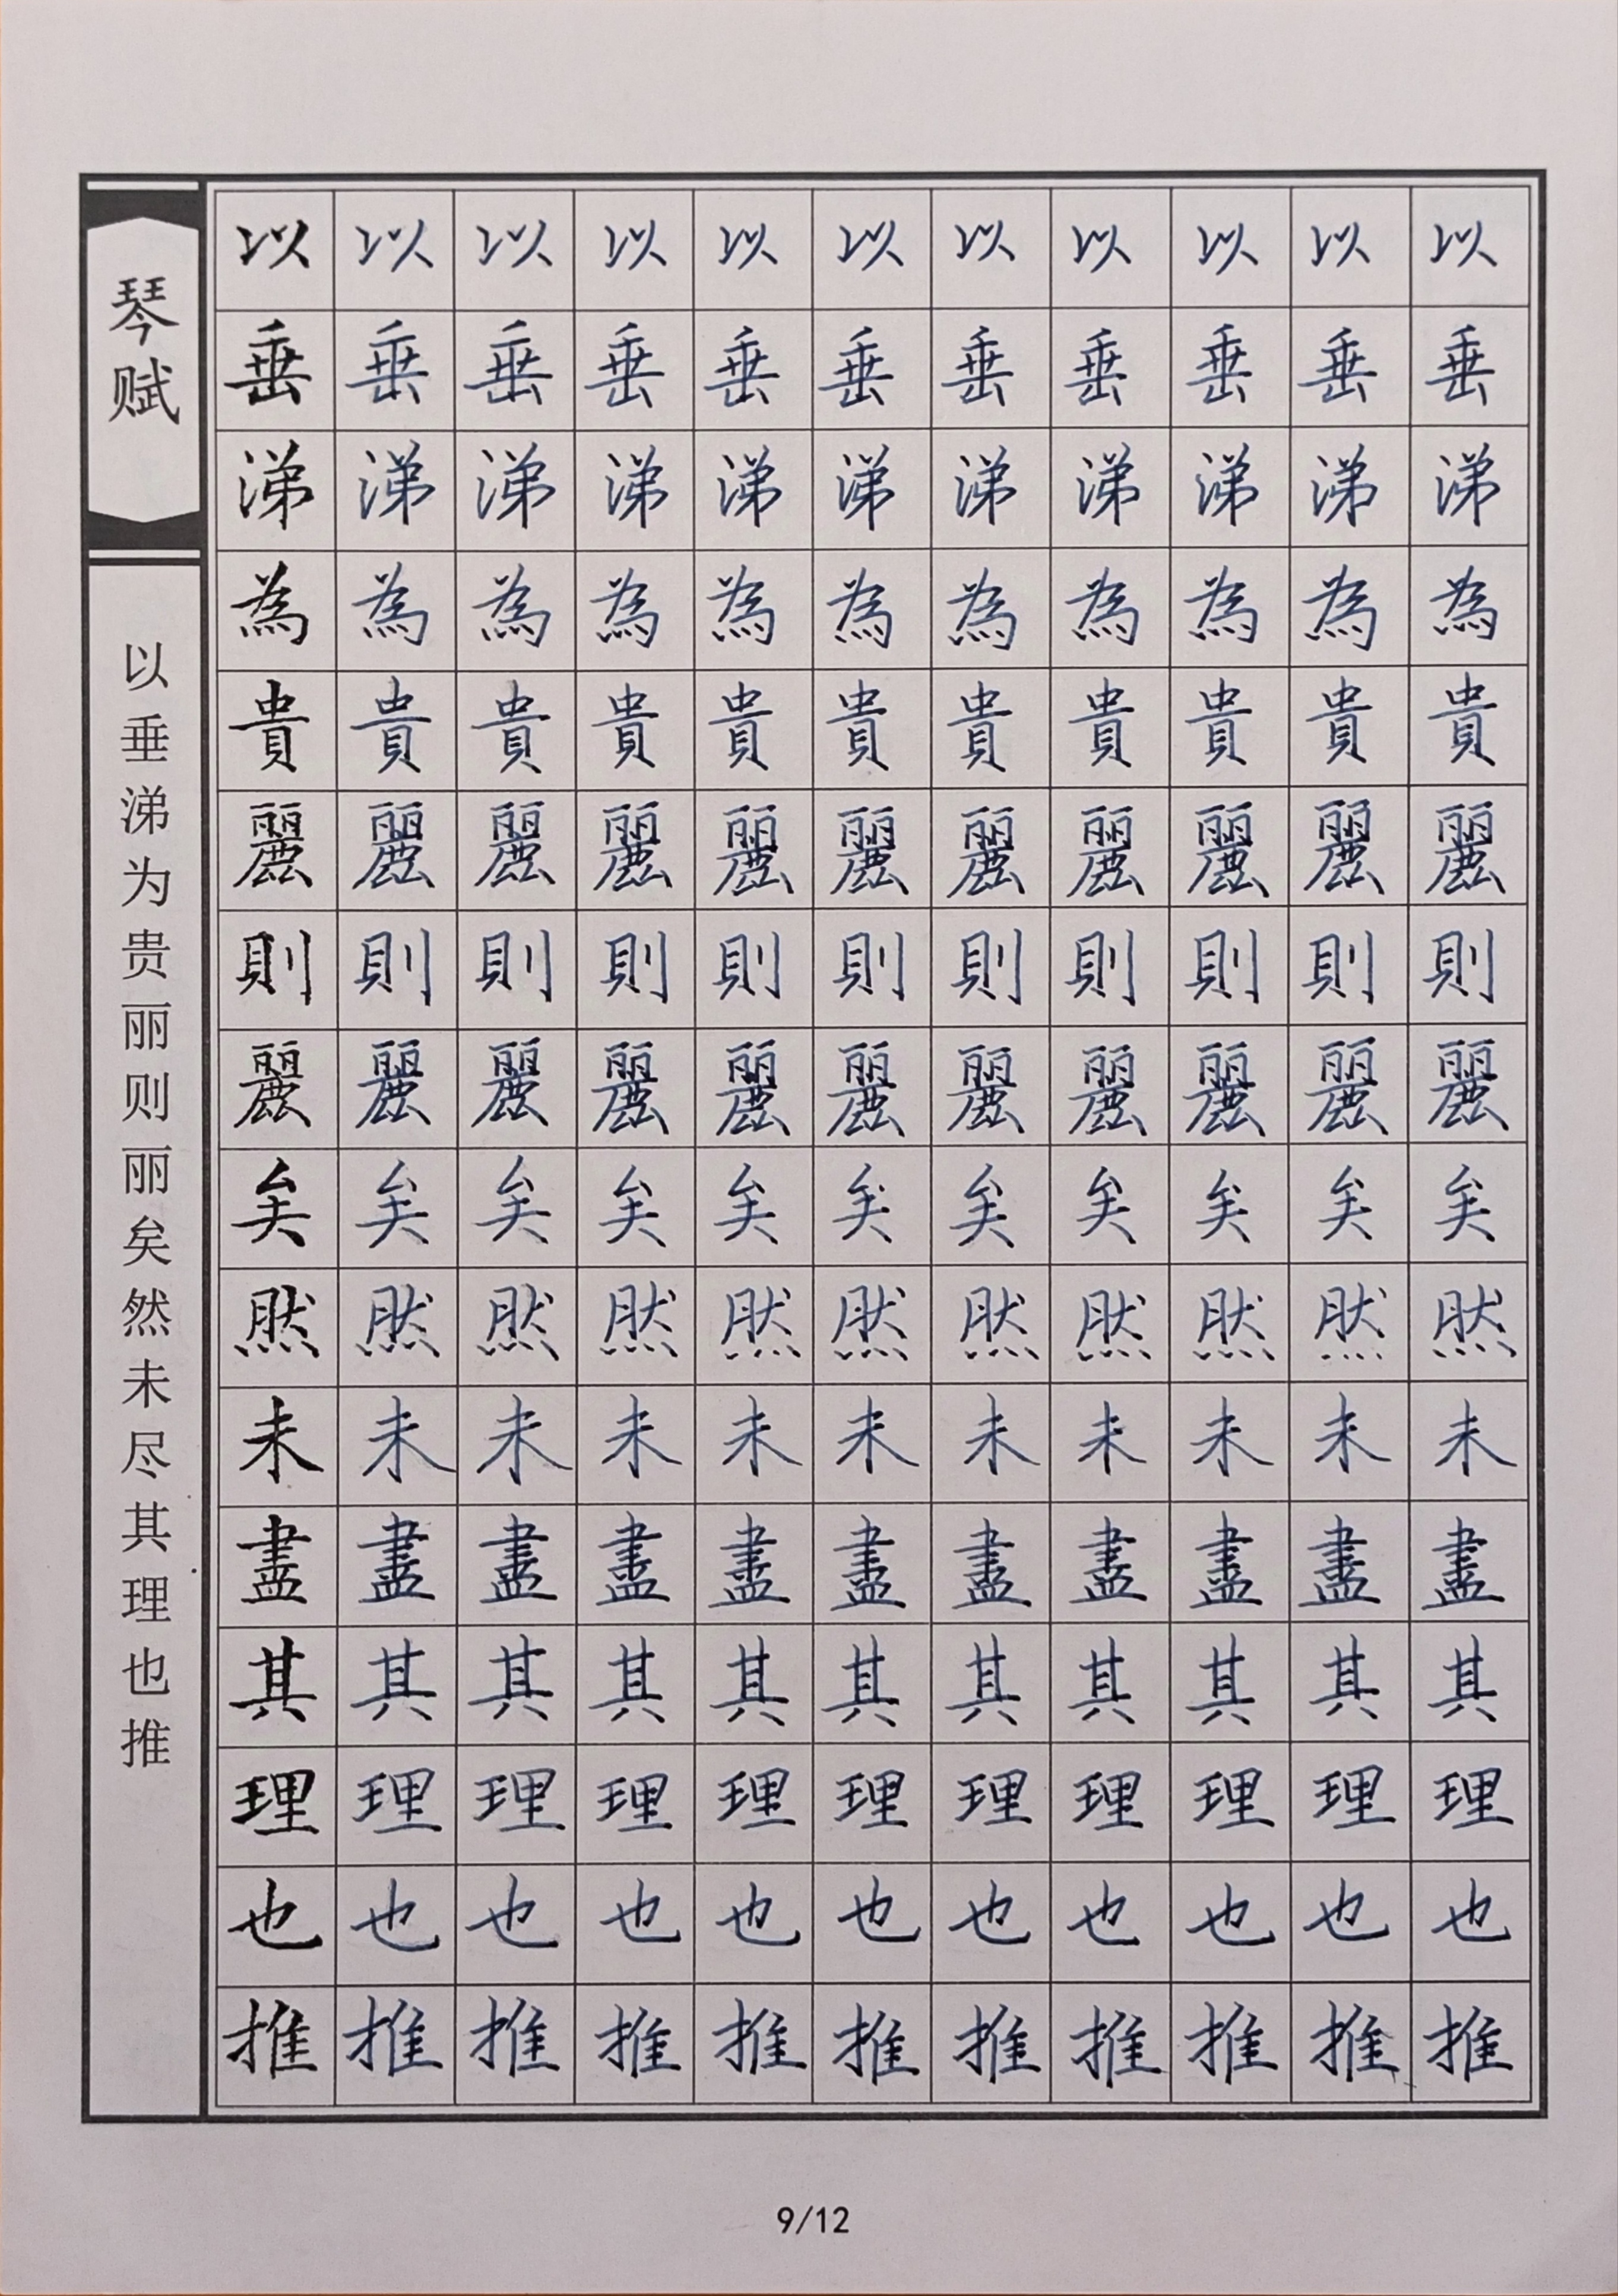 琴赋
以垂涕为贵丽则丽矣然未尽其理也推
以以以以以以以以以以以
垂垂垂垂垂垂垂垂垂垂垂
涕涕涕涕涕涕涕涕涕涕涕
為為為為為為為為為為為
貴貴貴貴貴貴貴貴貴貴貴
麗麗麗麗麗麗麗麗麗麗麗
則則則則則則則則則則則
麗麗麗麗麗麗麗麗麗麗麗
矣矣矣矣矣矣矣矣矣矣矣
然然然然然然然然然然然
未未未未未未未未未未未
盡盡盡盡盡盡盡盡盡盡盡
其其其其其其其其其其其
理理理理理理理理理理理
也也也也也也也也也也也
推推推推推推推推推推推
9/12